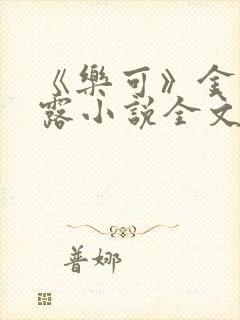 《樂可》金
露小說全文
普娜